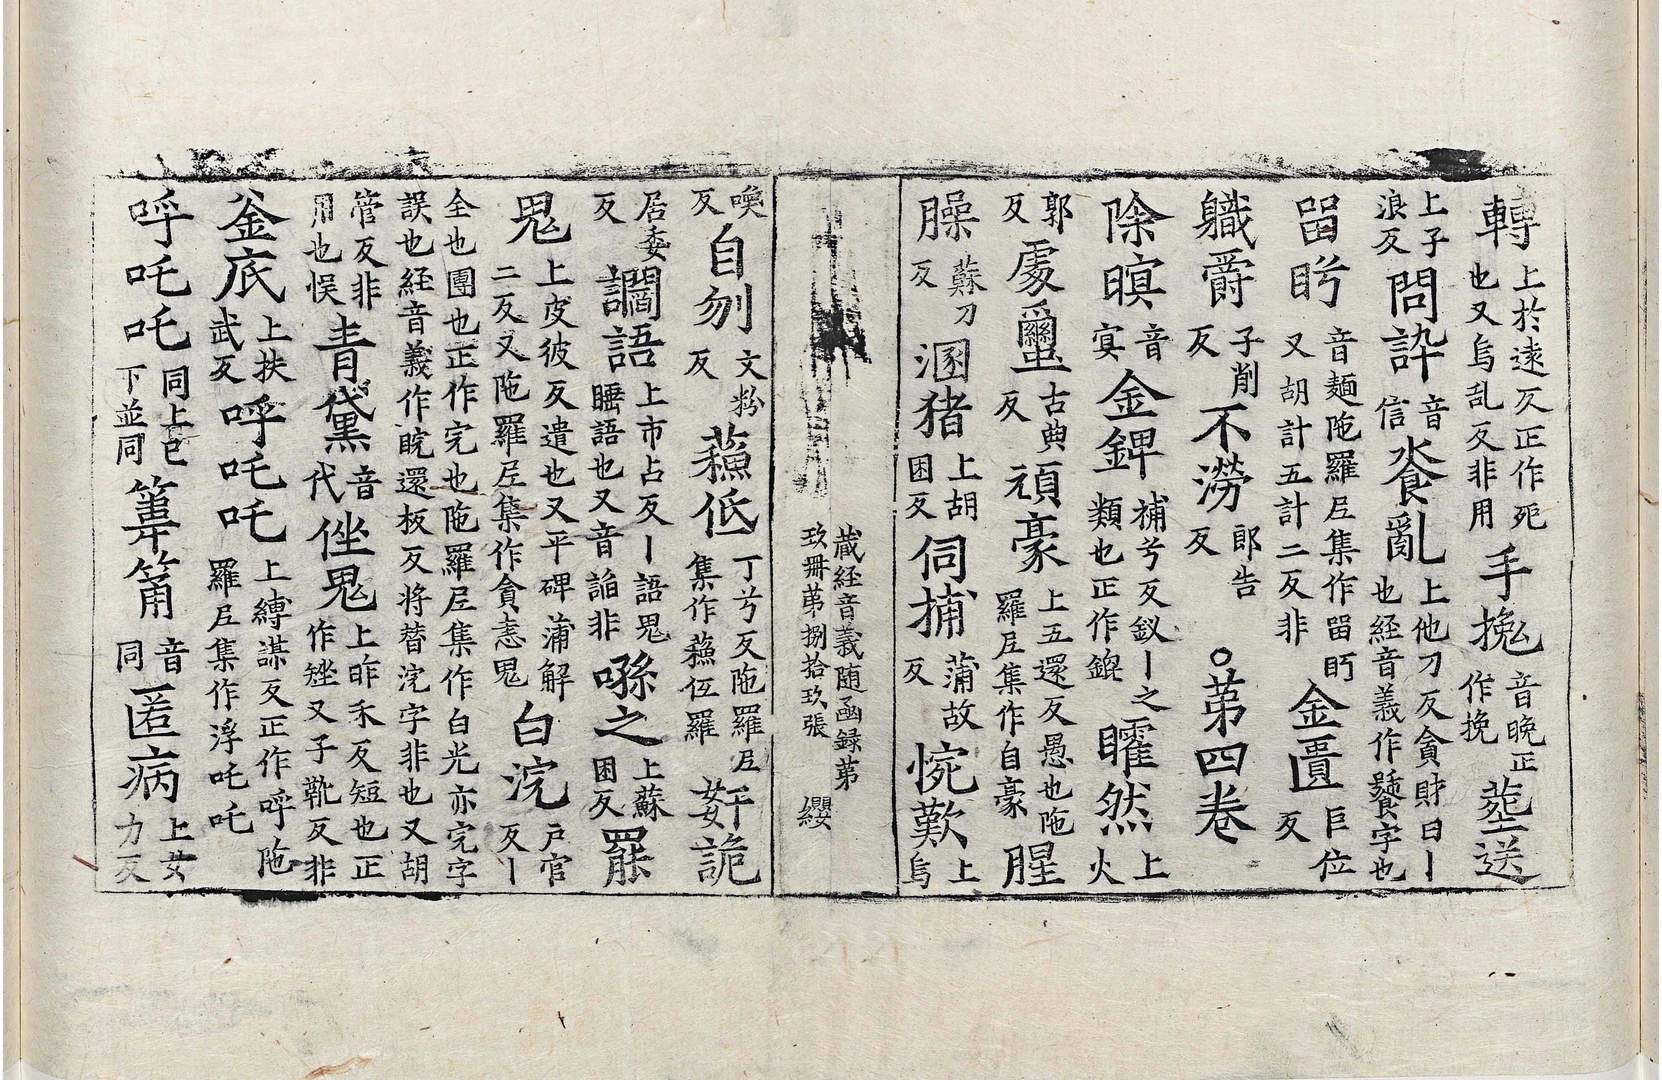 轉上於遠反正作宛也又烏乱反非用手挽音晚正作挽塟送
上子浪反問誶音信飻亂上他刀反貪財曰丨也経音義作饕字也
㽞眄音麺陁羅尼集作㽞眄又胡計五計二反非金匱巨位反
軄爵子削反不澇郎告反○苐四卷
除暝音㝠金錍補兮反釵丨之類也正作錍矐然上火
郭反䖏䘉古典反頑豪上五還反愚也陁羅尼集作自豪腥
臊蘇刀反溷猪上胡困反伺捕蒲故反惋歎上烏
喚反自刎文粉反蘓低丁兮反陁羅尼集作蘓伍羅姧詭
居委反讇語上市占反丨語鬼睡語也又音謟非噝之上蘇困反罷
鬼上皮彼反遣也又平碑蒲解二反又陁羅尼集作貪恚鬼白浣戶官反丨
全也團也正作完也陁羅尼集作白光亦完字誤也経音義作睆還板反将替浣字非也又胡
管反非用也悮青黛音代侳鬼上昨禾反短也正作矬又子靴反非
釜底上扶武反呼吒吒上縛謀反正作呼陁羅尼集作浮吒吒
呼吒吒同上已下並同篿箾音同匿病上女力反
蔵経音義随函録苐玖冊苐捌拾玖張 纓